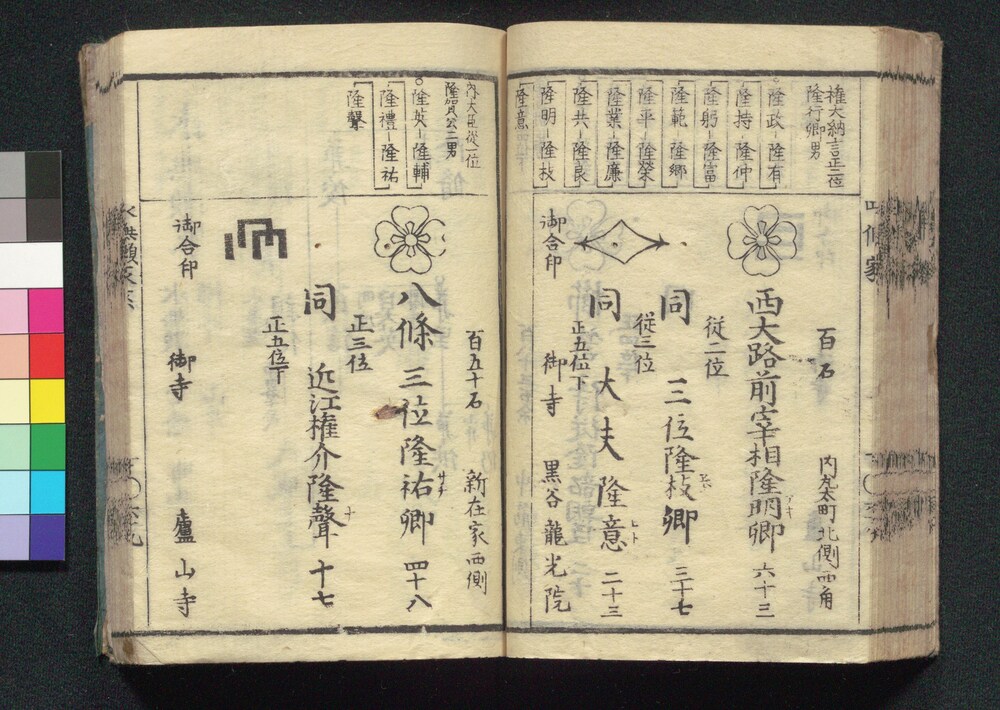 権大納言正二位
隆行卿男
隆政-隆有
隆持-隆仲
隆躬-隆富
隆範-隆郷
隆平-隆榮
隆業-隆廉
隆共-隆良
隆明-隆枝
隆意
百石
内丸太町北側四角
西大路前宰相隆明卿 六十三
従二位
同 三位隆枝卿 三十七
従三位
同 大夫隆意 二十三
正五位下
御合印 御寺 黒谷龍光院
内大臣従一位
隆英-隆輔
隆禮-隆祐
隆聲
百五十石 新在家西側
八條 三位隆祐卿 四十八
正三位
同 近江権介隆聲 十七
正五位下
御合印 御寺 廬山寺